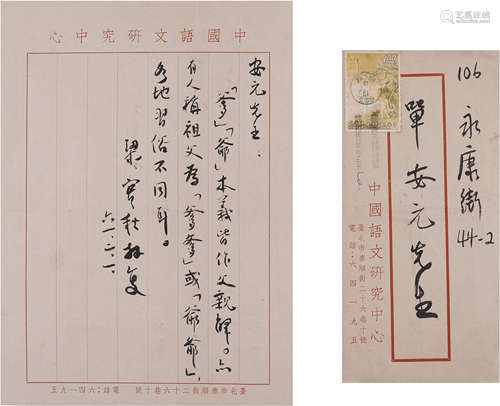 中國語文研究中心
安元先生：
「爹」「爺」本義皆作父親解。亦
有人稱祖父為「爹爹」或「爺爺」，
各地習俗不同耳。
梁實秋拜复
六一、二、一、
臺北市泰順街二十六巷十號　電話：六四一九五
106
永康街
44-2
單安元先生
中國語文研究中心
臺北市泰順街二十六巷十號
電話：六四一九五